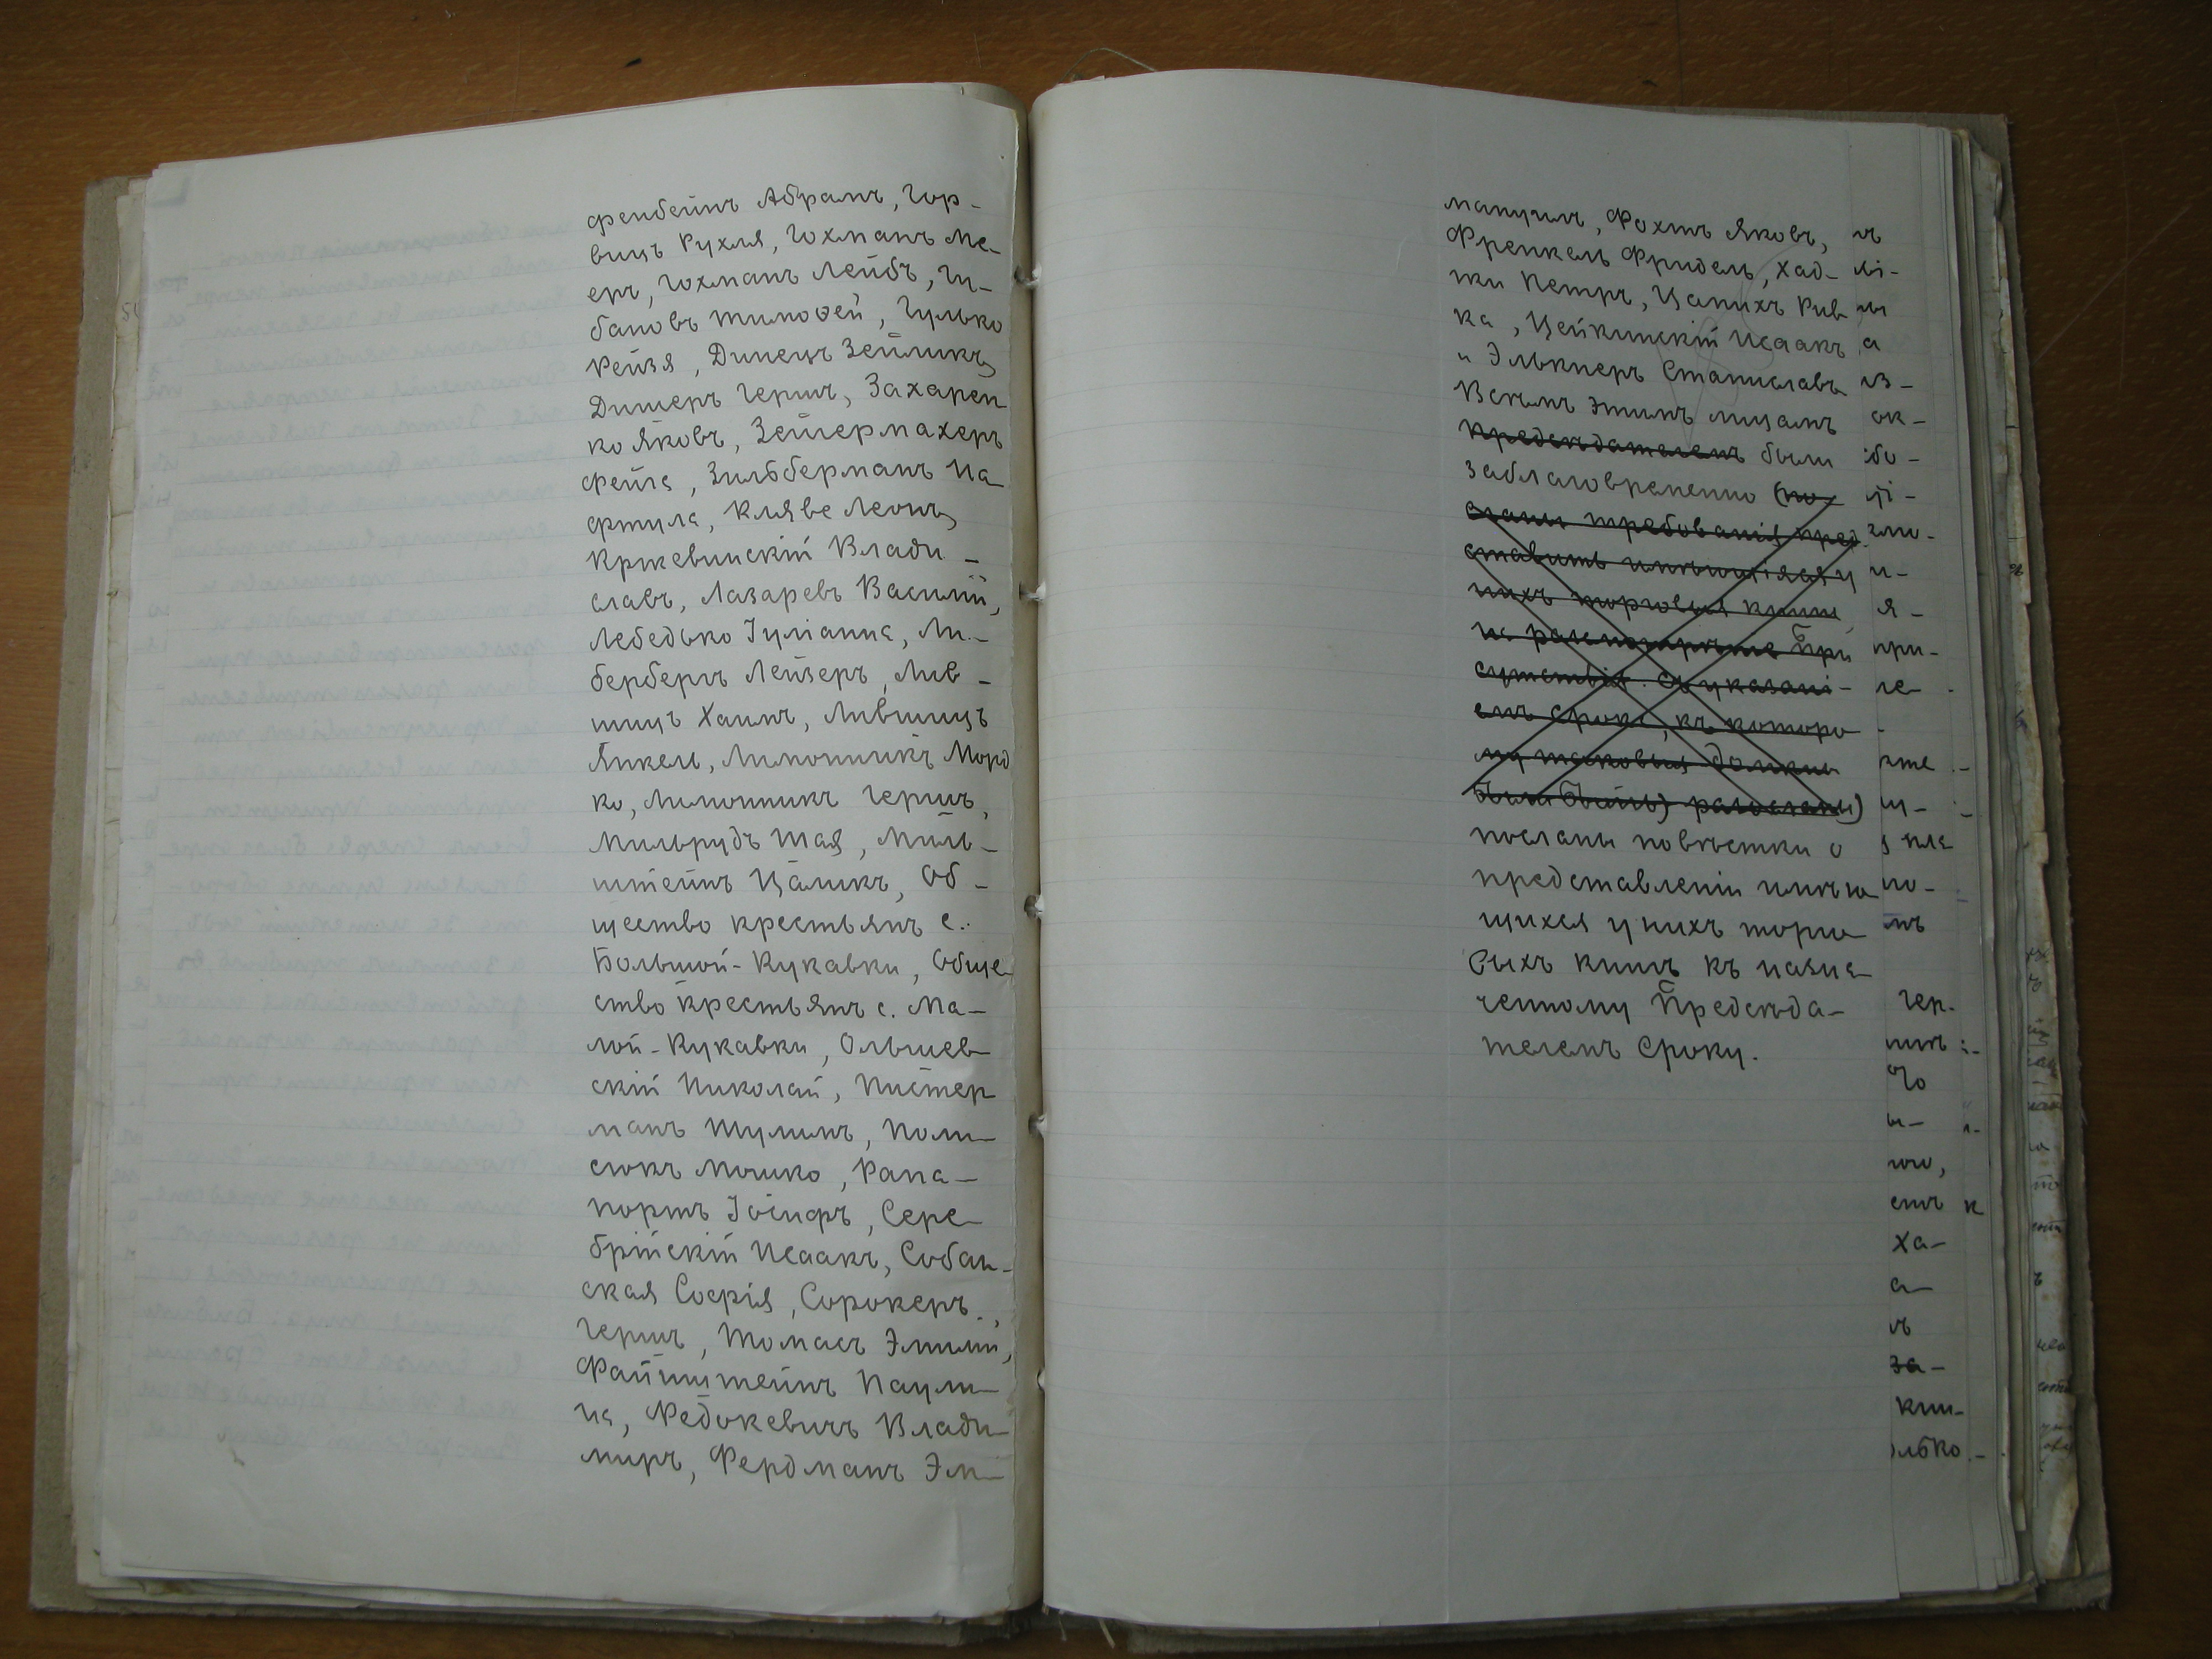 фенбейнъ Абрамъ, Гор-
вицъ Рухля, Гохманъ Ме-
еръ, Гохманъ Лейбъ, Гу-
бановъ Тимофей, Гулько
Рейзя, Динецъ Зейликъ,
Дишеръ Гершъ, Захарен
ко Яковъ, Зейгермахеръ
Фейга, Зильберманъ На-
фтула, Кляве Леонъ,
Кржевинскій Влади-
славъ, Лазаревъ Василій,
Лебедько Іуліанна, Ли-
бербергъ Лейзеръ, Лив-
шицъ Хаимъ, Лившицъ
Янкель, Лимонникъ Морд
ко, Лимонникъ Гершъ,
Мильрудъ Шая, Миль-
штейнъ Цаликъ, Об-
щество крестьянъ с.
Большой-Кукавки, Обще-
ство крестьянъ с. Ма-
лой-Кукавки, Ольшев-
скій Николай, Пистер
манъ Шулимъ, Поли-
сюкъ Мошко, Рапа-
портъ Іосифъ, Сере-
брійскій Исаакъ, Собан-
ская Софія, Сорокеръ
Гершъ, Томасъ Эмилій,
Файнштейнъ Паули-
на, Федокевичъ Влади-
миръ, Фердманъ Эм-
мануилъ, Фохтъ Яковъ,
Френкель Фридель, Хад-
жи Петръ, Цапихъ Рив
ка, Цейкинскій Исаакъ
и Элькнеръ Станиславъ
Всѣмъ этимъ лицамъ
Предсѣдателемъ были
заблаговременно (по-
сланы требованія пред-
ставить имѣющіяся у
нихъ торговыя книги
на разсмотрѣніе При
сутствія. съ указані-
емъ срока, къ которо
му таковыя должны
были быть) разосланы)
посланы повѣстки о
представленіи имѣю
щихся у нихъ торго
выхъ книгъ къ назна-
ченному Предсѣда-
телемъ сроку.